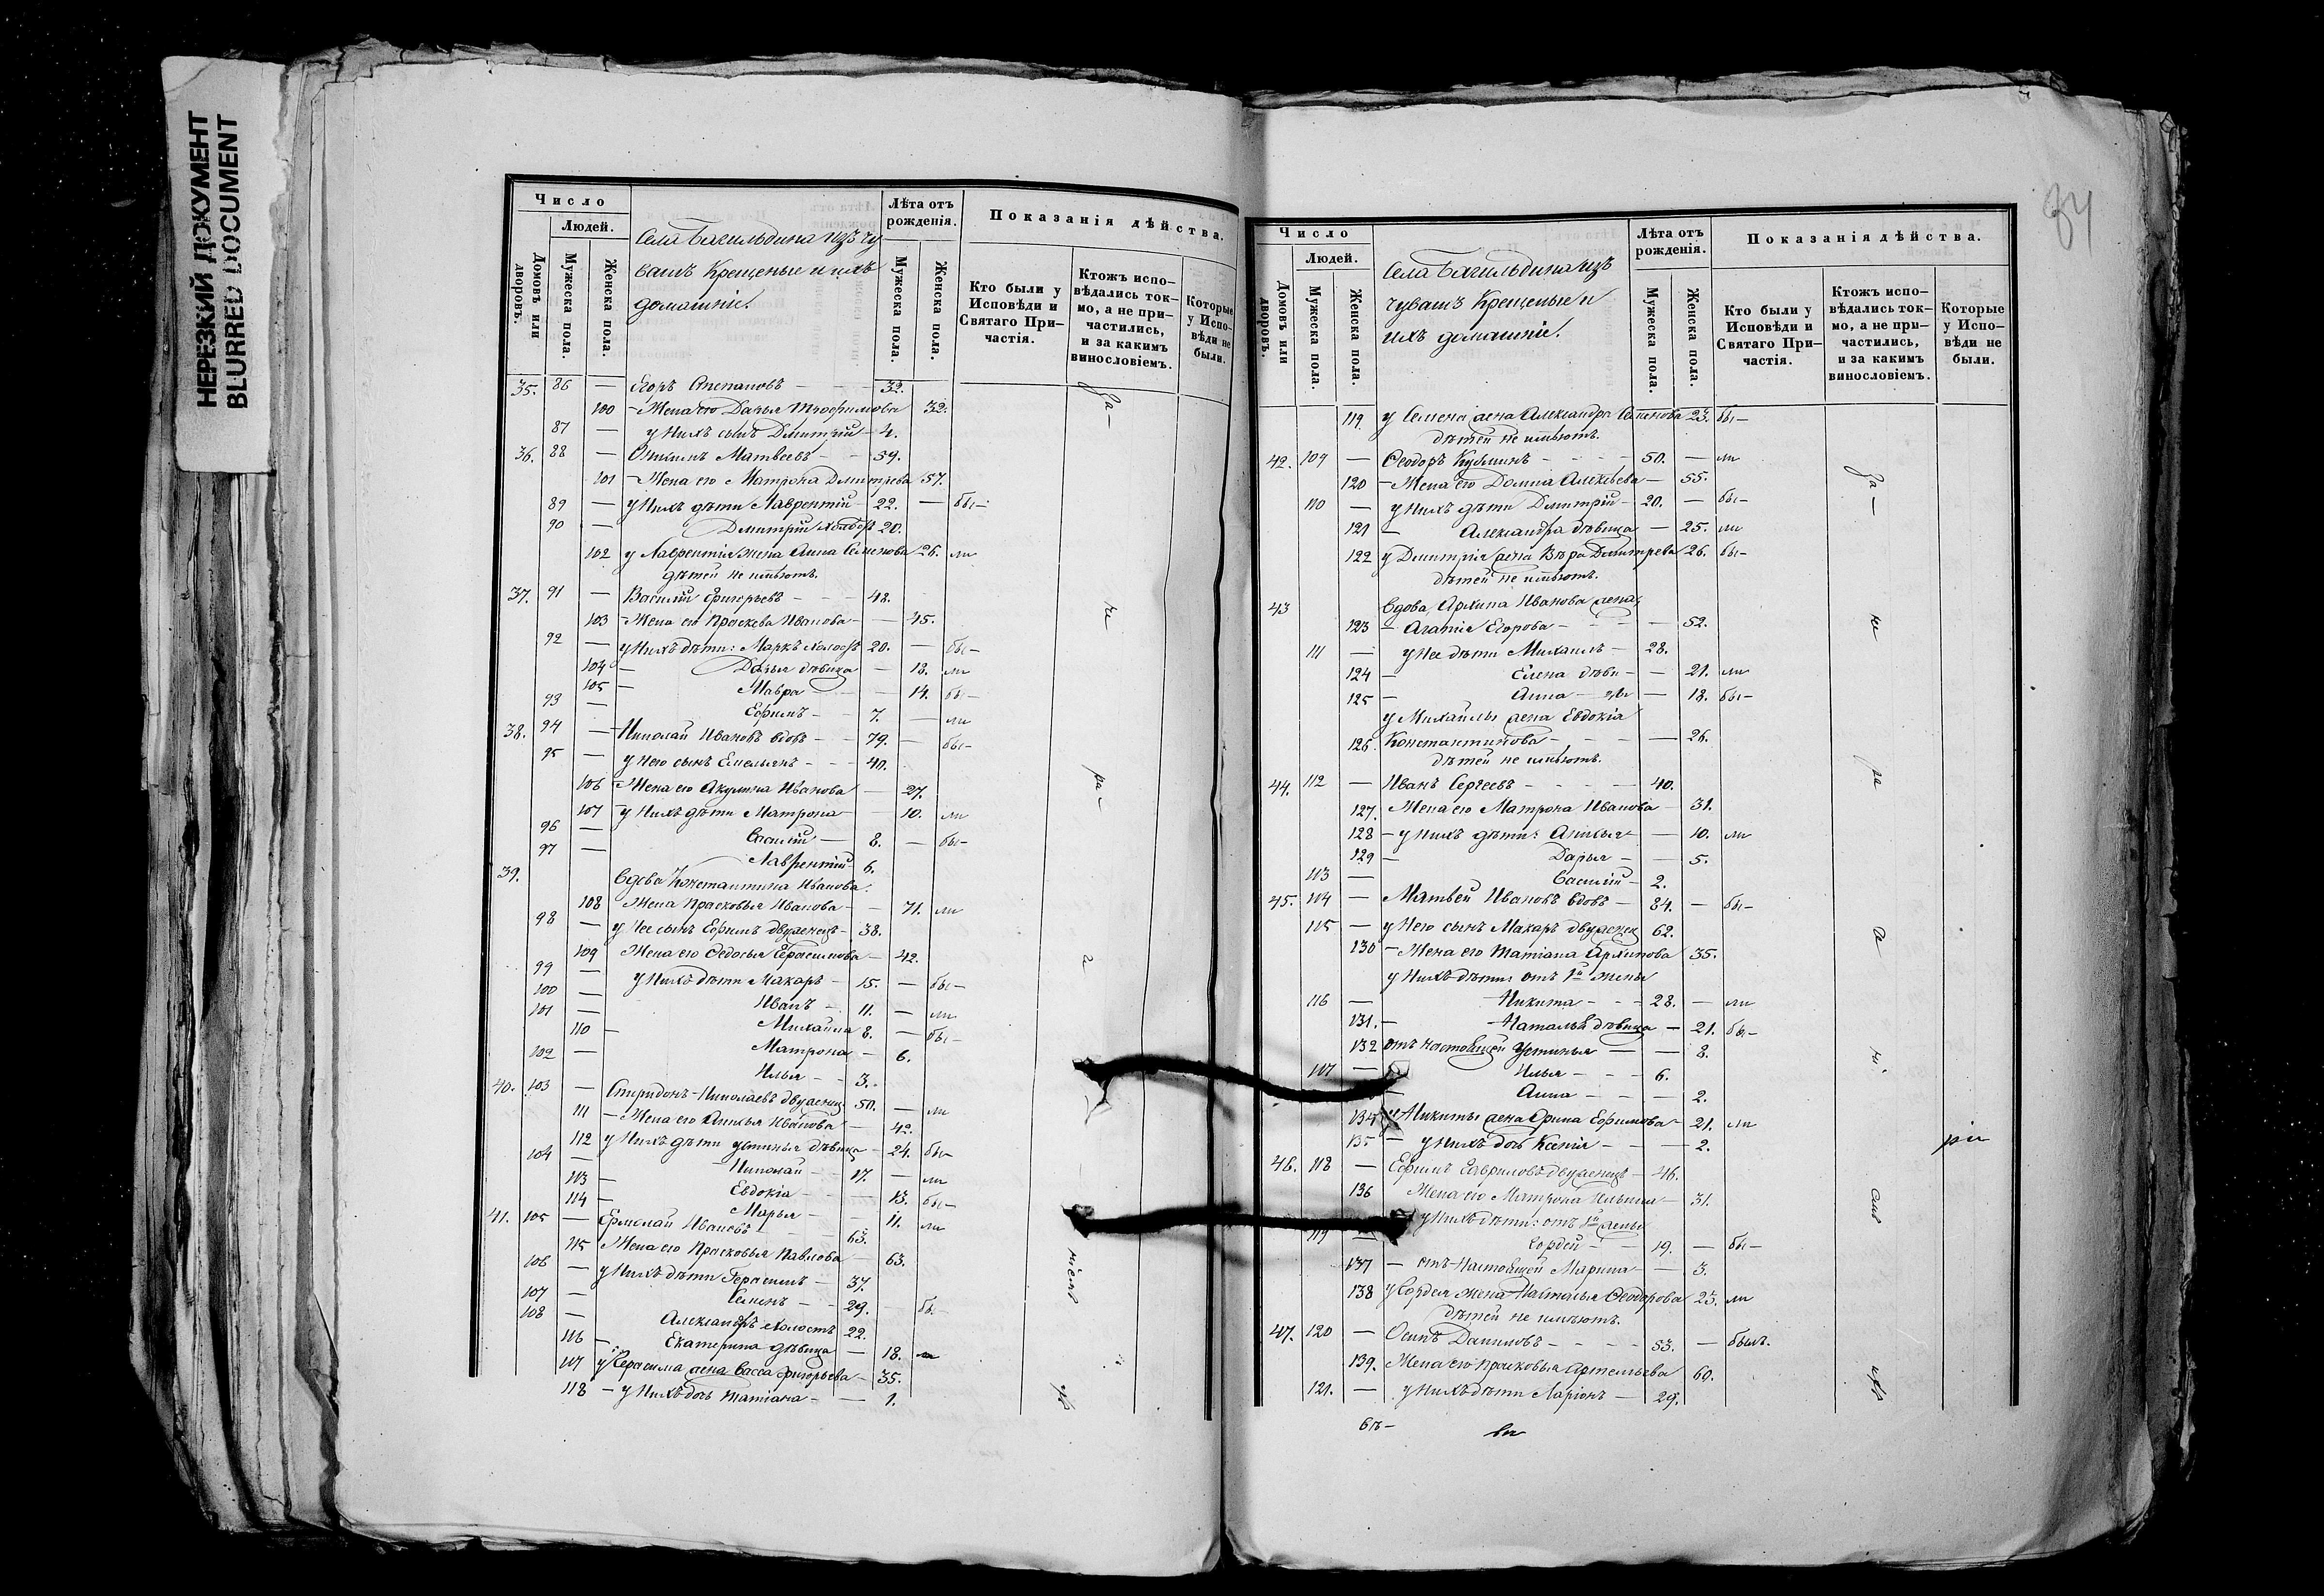 НЕРЕЗКИЙ ДОКУМЕНТ
BLURRED DOCUMENT
Число
Людей.
Домовъ или дворовъ.
Мужеска пола.
Женска пола.
Села Багильдина изъ чу
вашъ Крещеные и ихъ
домашніе.
Лѣта отъ рожденія.
Мужеска пола.
Женска пола.
Показанія дѣйства.
Кто были у Исповѣди и Святаго Причастія.
Ктожъ исповѣдались токмо, а не причастились, и за какимъ винословіемъ.
Которые у Исповѣди не были.
35. 86 — Егоръ Степановъ - 32.
100 - Жена его Дарья Трофимова 32.
87 — у нихъ сынъ Дмитрій 4.
36. 88 — Матвеевъ - 59.
101 - Жена его Матрона Дмитрева 57.
89 — у нихъ дѣти Лаврентій - 22. — бы-
90 — Дмитрій холостъ 20.
102 у Лаврентія жена Анна Семенова 26. ли
дѣтей не имѣютъ.
37. 91 — Василій Григорьевъ - 48.
103 - Жена его Праскева Иванова - 45.
92 — у нихъ дѣти: Маркъ холостъ 20. — бы-
104 — Дарья дѣвица — 18. ли
105 — Мавра — 14. бы-
93 — Ефимъ - 7. — ли
38. 94 — Николай Ивановъ вдовъ - 79. — бы-
95 — у него сынъ Емельянъ - 40.
106 - Жена его Акулина Иванова — 27.
107 - у нихъ дѣти Матрона — 10. ли
96 — Василій — 8. — бы-
97 — Лаврентій 6.
39. Вдова Константина Иванова
108 Жена Прасковья Иванова - 71. ли
98 — у нее сынъ Ефимъ двуженецъ - 38.
109 Жена его Федосья Герасимова — 42.
99 — у нихъ дѣти Макаръ - 15. — бы-
100 — Иванъ - 11. — ли
101 — Михайла 8. — бы-
110 — Матрона — 6.
102 — Илья - 3.
40. 103 — Спиридонъ Николаевъ двуженец 50. — ли
111 — Жена его Анисья Иванова — 42.
112 у нихъ дѣти Устинья дѣвица - 24. бы-
104 — Николай - 17. — ли
113 — Евдокіа — 13. бы-
114 — Марья - 11. ли
41. 105 — Ермолай Ивановъ - 63.
115 Жена его Прасковья Павлова — 63.
106 — у нихъ дѣти Герасимъ - 37.
107 — Семенъ - 29. — бы-
108 — Александръ холостъ 22.
116 — Екатерина дѣвица — 18. ли
117 у Герасима жена Васса Григорьева - 35.
118 — у нихъ дочь Татіана - 1.
84
Число
Людей.
Домовъ или дворовъ.
Мужеска пола.
Женска пола.
Села Багильдина изъ
чувашъ Крещеные и
ихъ домашніе.
Лѣта отъ рожденія.
Мужеска пола.
Женска пола.
Показанія дѣйства.
Кто были у Исповѣди и Святаго Причастія.
Ктожъ исповѣдались токмо, а не причастились, и за какимъ винословіемъ.
Которые у Исповѣди не были.
119 у Семена жена Александра Семенова 23. бы-
дѣтей не имѣютъ.
42. 109 — Ѳеодоръ Кузминъ - 50. — ли
120 - Жена его Домна Алексѣева — 55.
110 — у нихъ дѣти Дмитрій - 20. — бы-
121 — Александра дѣвица — 25. ли
122 у Дмитрія жена Вѣра Дмитрева 26. бы-
дѣтей не имѣютъ.
43 Вдова Архипа Иванова жена
123 — Агатія Егорова - 52.
111 — у нее дѣти Михаилъ - 28.
124 — Елена дѣви - 21. ли
125 — Анна — 18. бы-
у Михайлы жена Евдокіа
126. Константинова - 26.
дѣтей не имѣютъ.
44. 112 — Иванъ Сергеевъ - 40.
127. Жена его Матрона Иванова - 31.
128 — у нихъ дѣти: Анисья — 10. ли
129 — Дарья - 5.
113 — Василій - 2.
45. 114 — Матвей Ивановъ вдовъ - 84. — бы-
115 — у него сынъ Макаръ двужен 62.
130 - Жена его Татіана Архипова 35.
у нихъ дѣти отъ 1й жены
116 — Никита - 28. — ли
131. — Наталья дѣвица — 21. бы-
132 отъ настоящей Устинья — 8.
117 — Илья - 6.
— Анна - 2.
134 у Никиты жена Орина Ефимова - 21. ли
135 — у нихъ дочь Ксенія - 2.
46. 118 — Ефимъ Гавриловъ двуженецъ - 46.
136 Жена его Матрона Ильина - 31.
у нихъ дѣти: отъ 1й жены
119 — Гордей - 19. — бы-
137 — отъ настоящей Марина - 3.
138 у Гордея жена Наталья Ѳеодорова 23. ли
дѣтей не имѣютъ.
47. 120 — Осипъ Даниловъ - 53. — былъ.
139. Жена его Прасковья Артемьева 60.
121. — у нихъ дѣти Ларіонъ - 29.